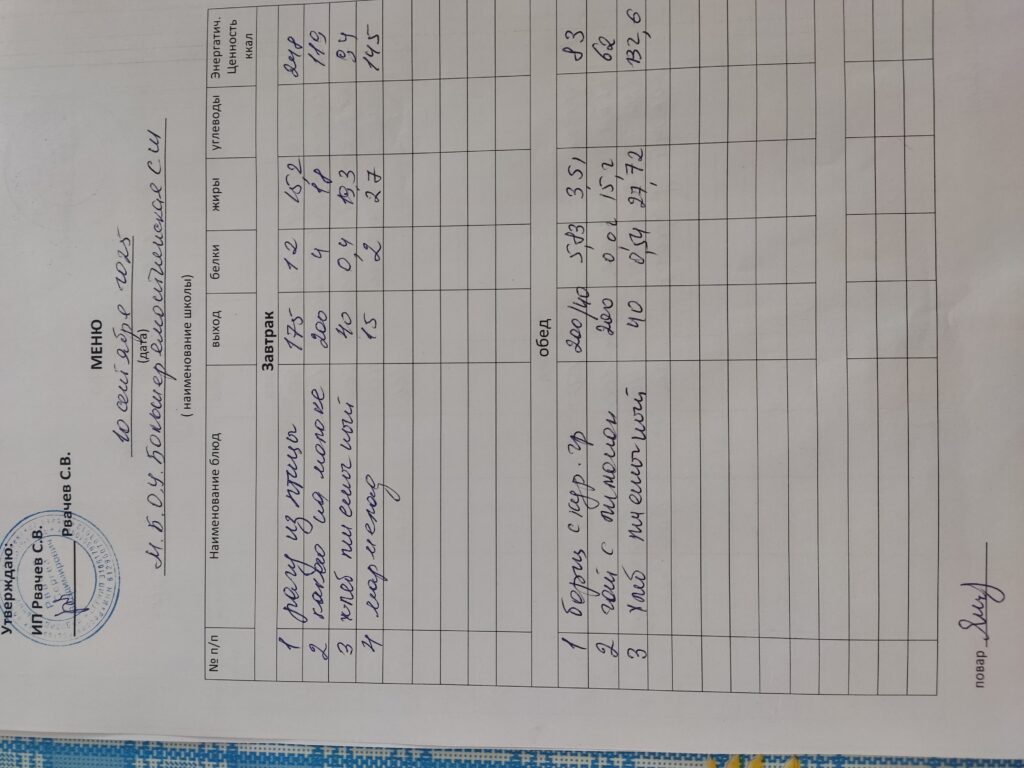 Утверждаю:
ИП Рвачев С.В.
Рвачев С.В.
МЕНЮ
10 сентября 2025
(дата)
М.Б.О.У. Большеремонтненская СШ
( наименование школы)
№ п/п Наименование блюд выход белки жиры углеводы Энергатич. Ценность ккал
Завтрак
1 рагу из птицы 175 12 15,2 248
2 какао на молоке 200 4 18 119
3 хлеб пшеничный 40 0,4 19,3 94
4 мармелад 15 2 27 145
обед
1 Борщ с кур. гр 200/40 5,83 3,51 83
2 чай с лимоном 200 0,01 15,2 62
3 Хлеб пшеничный 40 0,54 27,72 132,6
повар